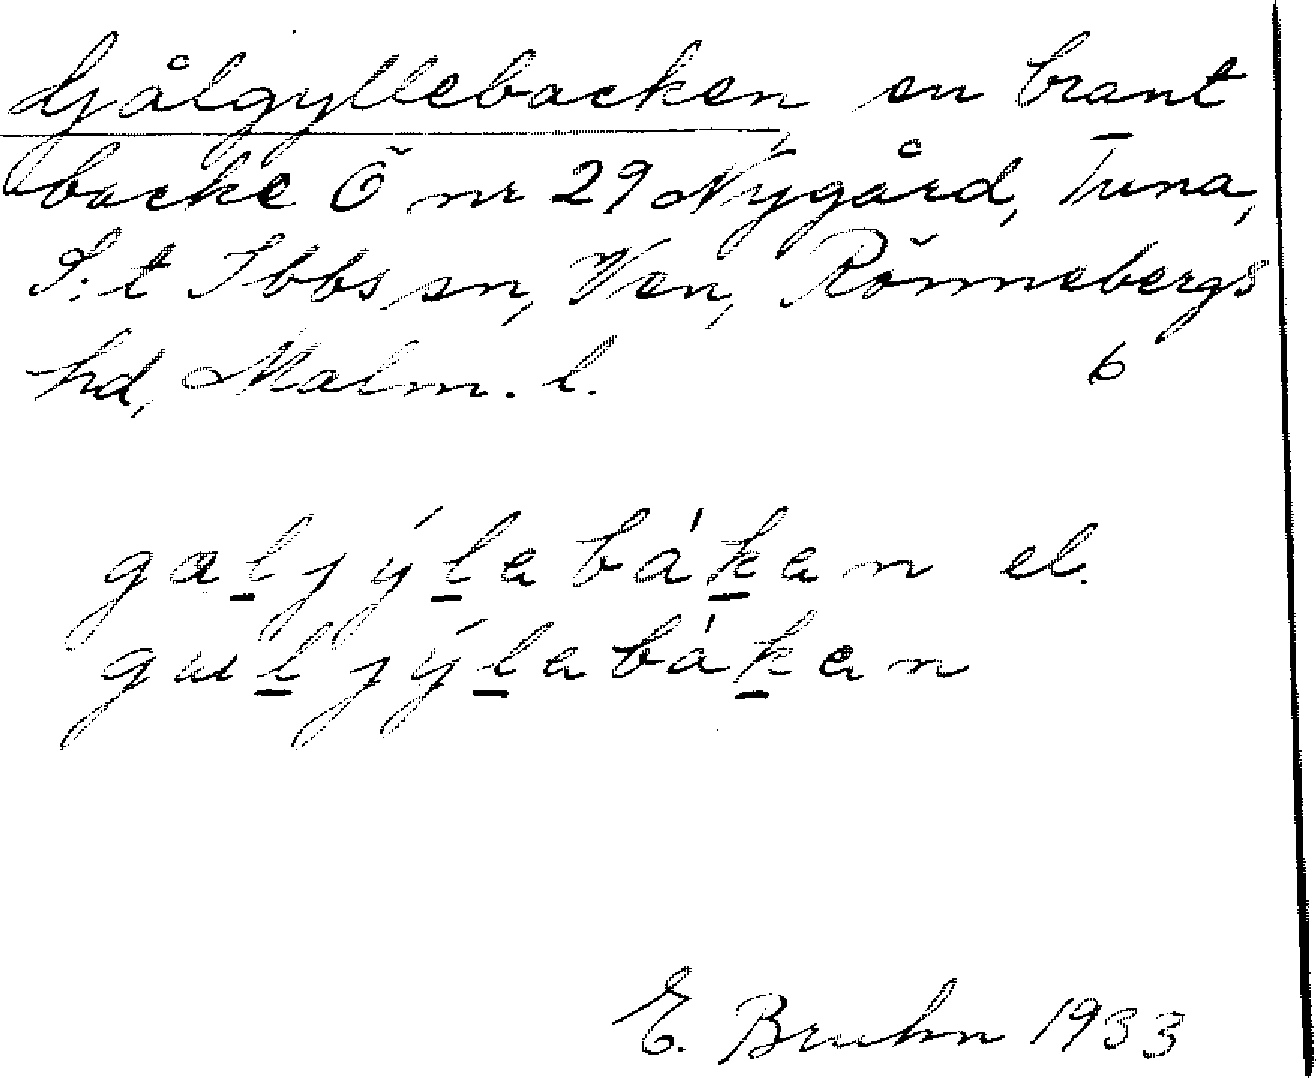 Gjålgyllebacken, en brant
backe Ö nr 29 Nygård, Tuna,
S:t Ibbs sn, Ven, Rönnebergs
hd, Malm. l. 6
galjýlabákan el.
gæljýlabákan
E. Bruhn 1933